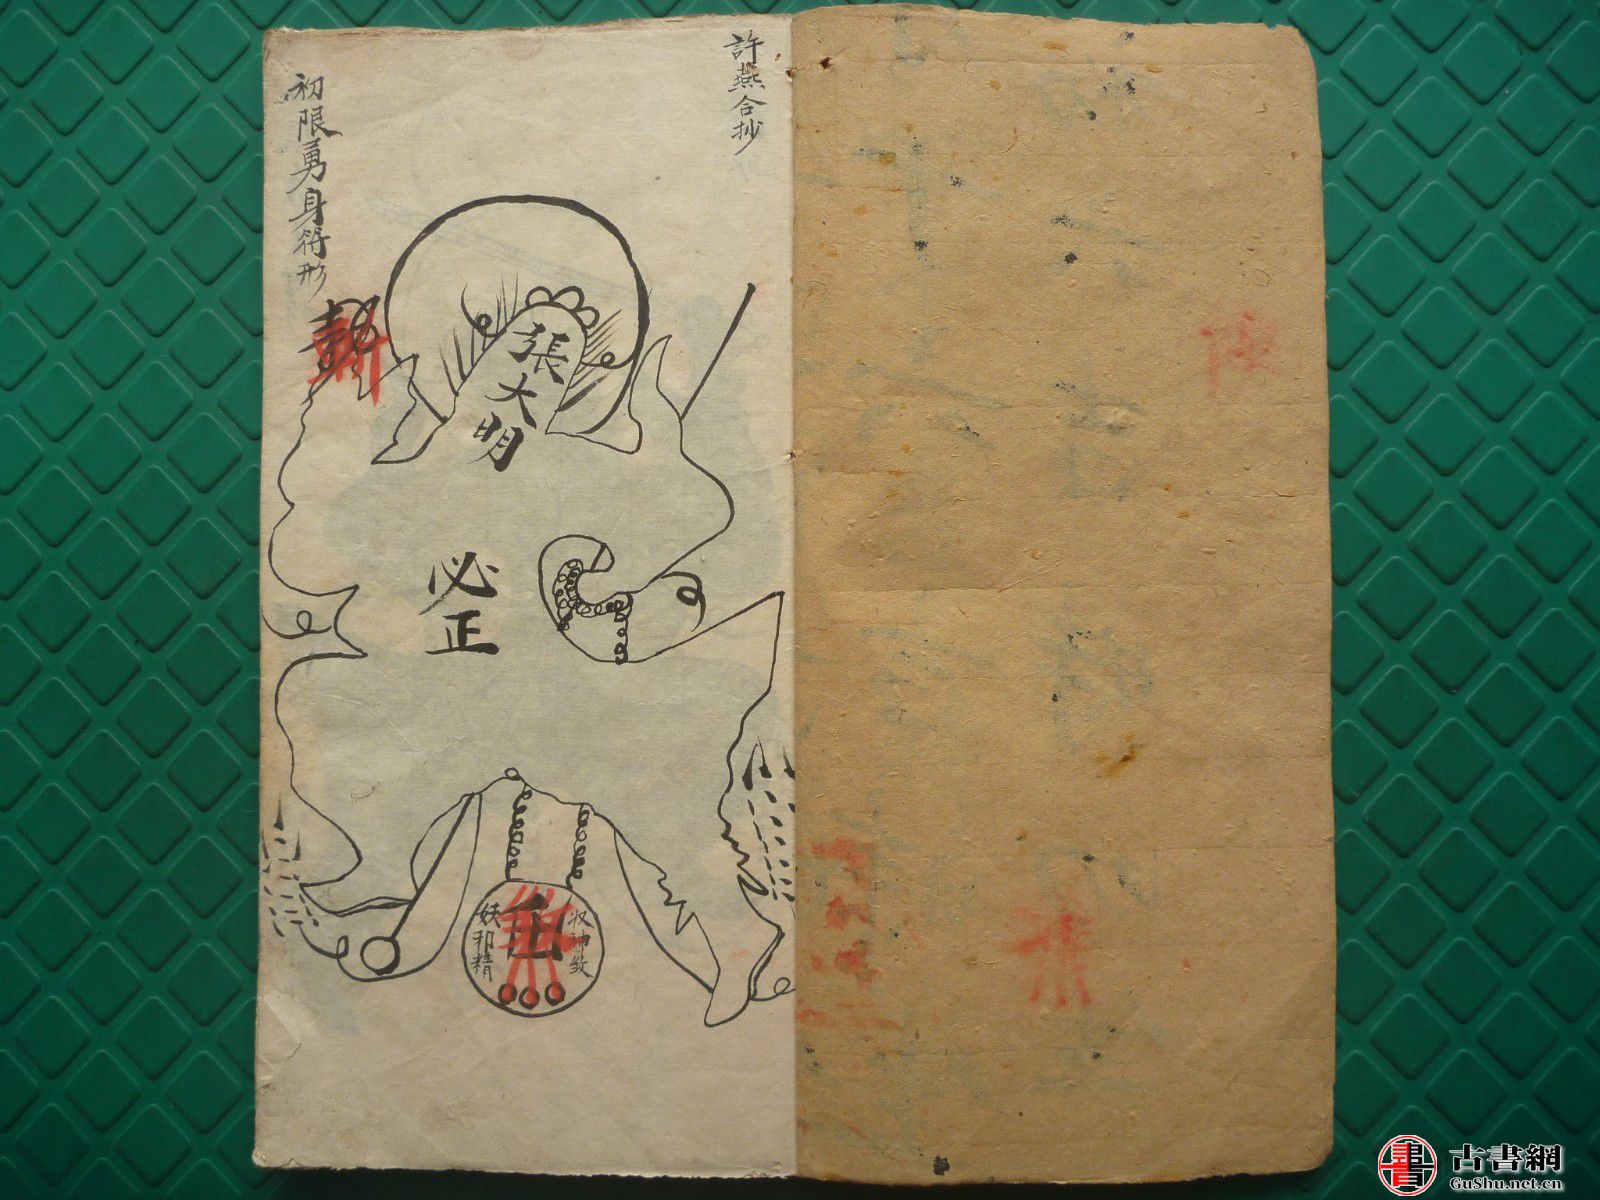 許燕合抄
初限勇身符形
張大明
必正
收神煞
妖邪精
古書網
GuShu.net.cn